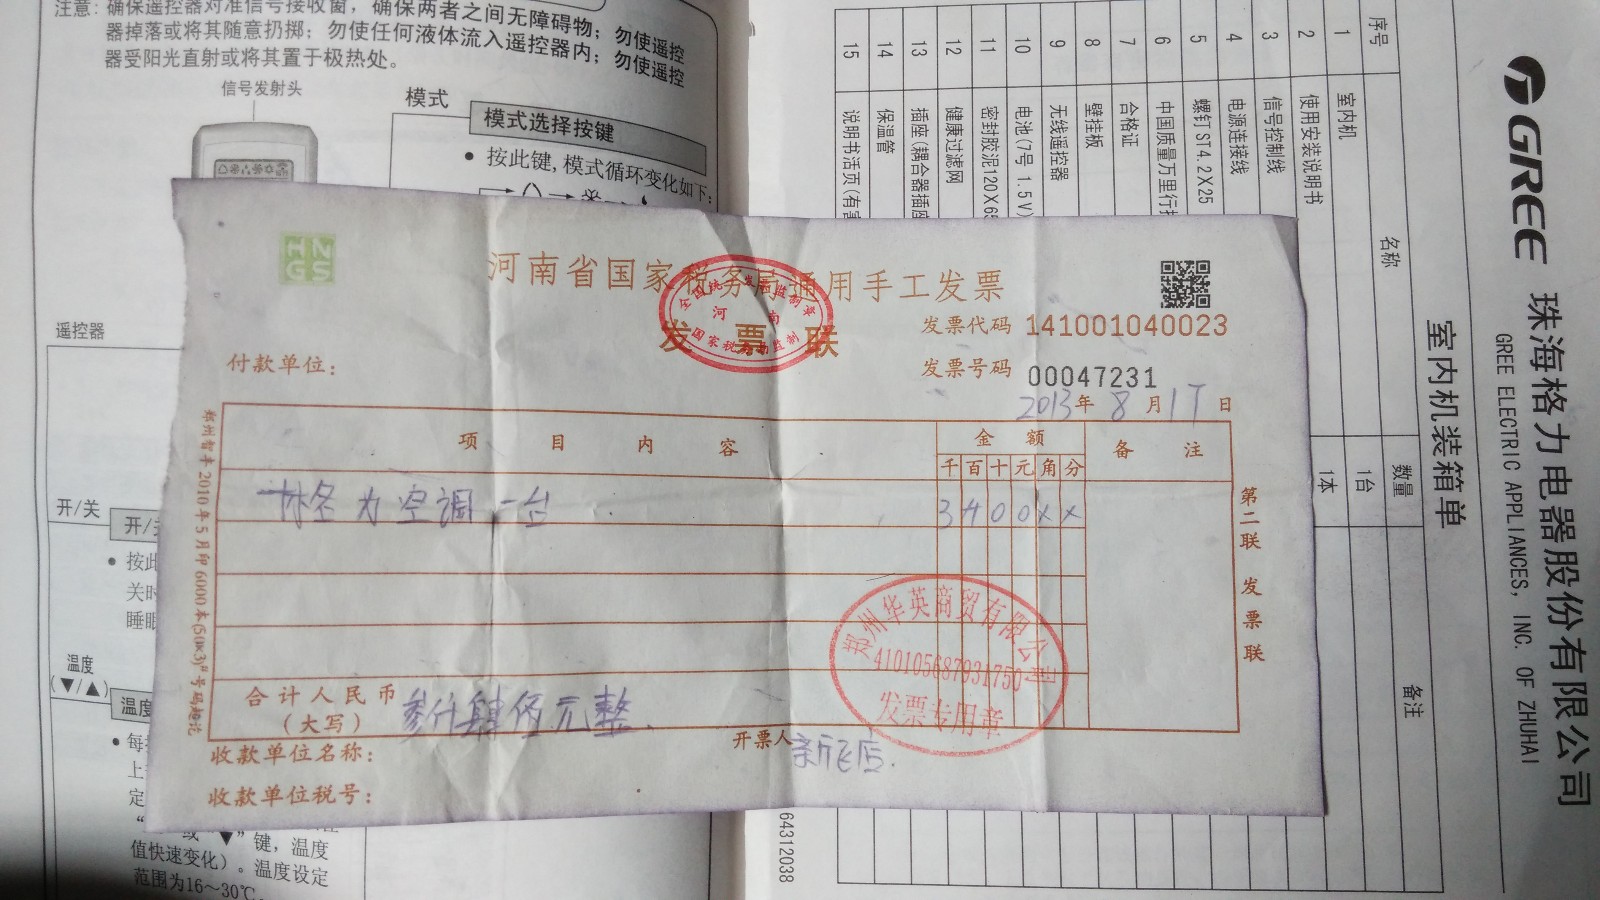 注意: 确保遥控器对准信号接收窗，确保两者之间无障碍物；勿使遥控
器掉落或将其随意扔掷；勿使任何液体流入遥控器内；勿使遥控
器受阳光直射或将其置于极热处。
信号发射头
模式
模式选择按键
• 按此键,模式循环变化如下:
遥控器
开/关
• 按此
关时
睡眠
温度
(▼/▲)
温度
• 每
上
定
“ 或 ▼”键，温度
值快速变化）。温度设定
范围为16～30℃.
HNGS
河南省国家税务局通用手工发票
发票联
全国统一发票监制章
河南
国家税务局监制
发票代码 141001040023
发票号码 00047231
付款单位:
2013年 8月17日
项目内容
金额
备注
千百十元角分
格力空调一台
3400××
合计人民币
(大写)
叁仟肆佰元整.
收款单位名称:
开票人
新飞店.
收款单位税号:
第二联 发票联
郑州华英商贸有限公司
410105687931750
发票专用章
GREE 珠海格力电器股份有限公司
GREE ELECTRIC APPLIANCES, INC. OF ZHUHAI
室内机装箱单
序号 名称 数量 备注
1 室内机 1台
2 使用安装说明书 1本
3 信号控制线
4 电源连接线
5 螺钉ST4.2X25
6 中国质量万里行
7 合格证
8 壁挂板
9 无线遥控器
10 电池(7号 1.5V)
11 密封胶泥120X65
12 健康过滤网
13 插座(耦合器插座
14 保温管
15 说明书活页(有害
64312038